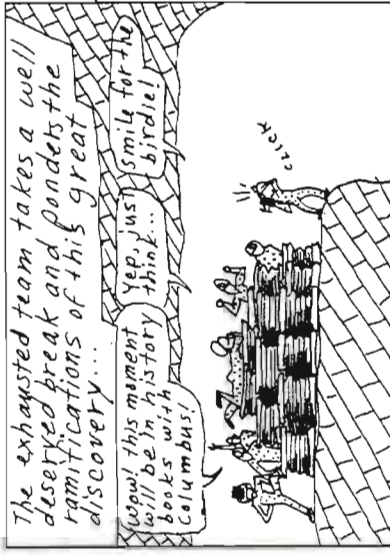 The exhausted team takes a well
deserved break and ponders the
ramifications of this great
discovery...
Wow! this moment
will be in history
books with
Columbus!
Yep, just
think...
Smile for the
birdie!
CLICK